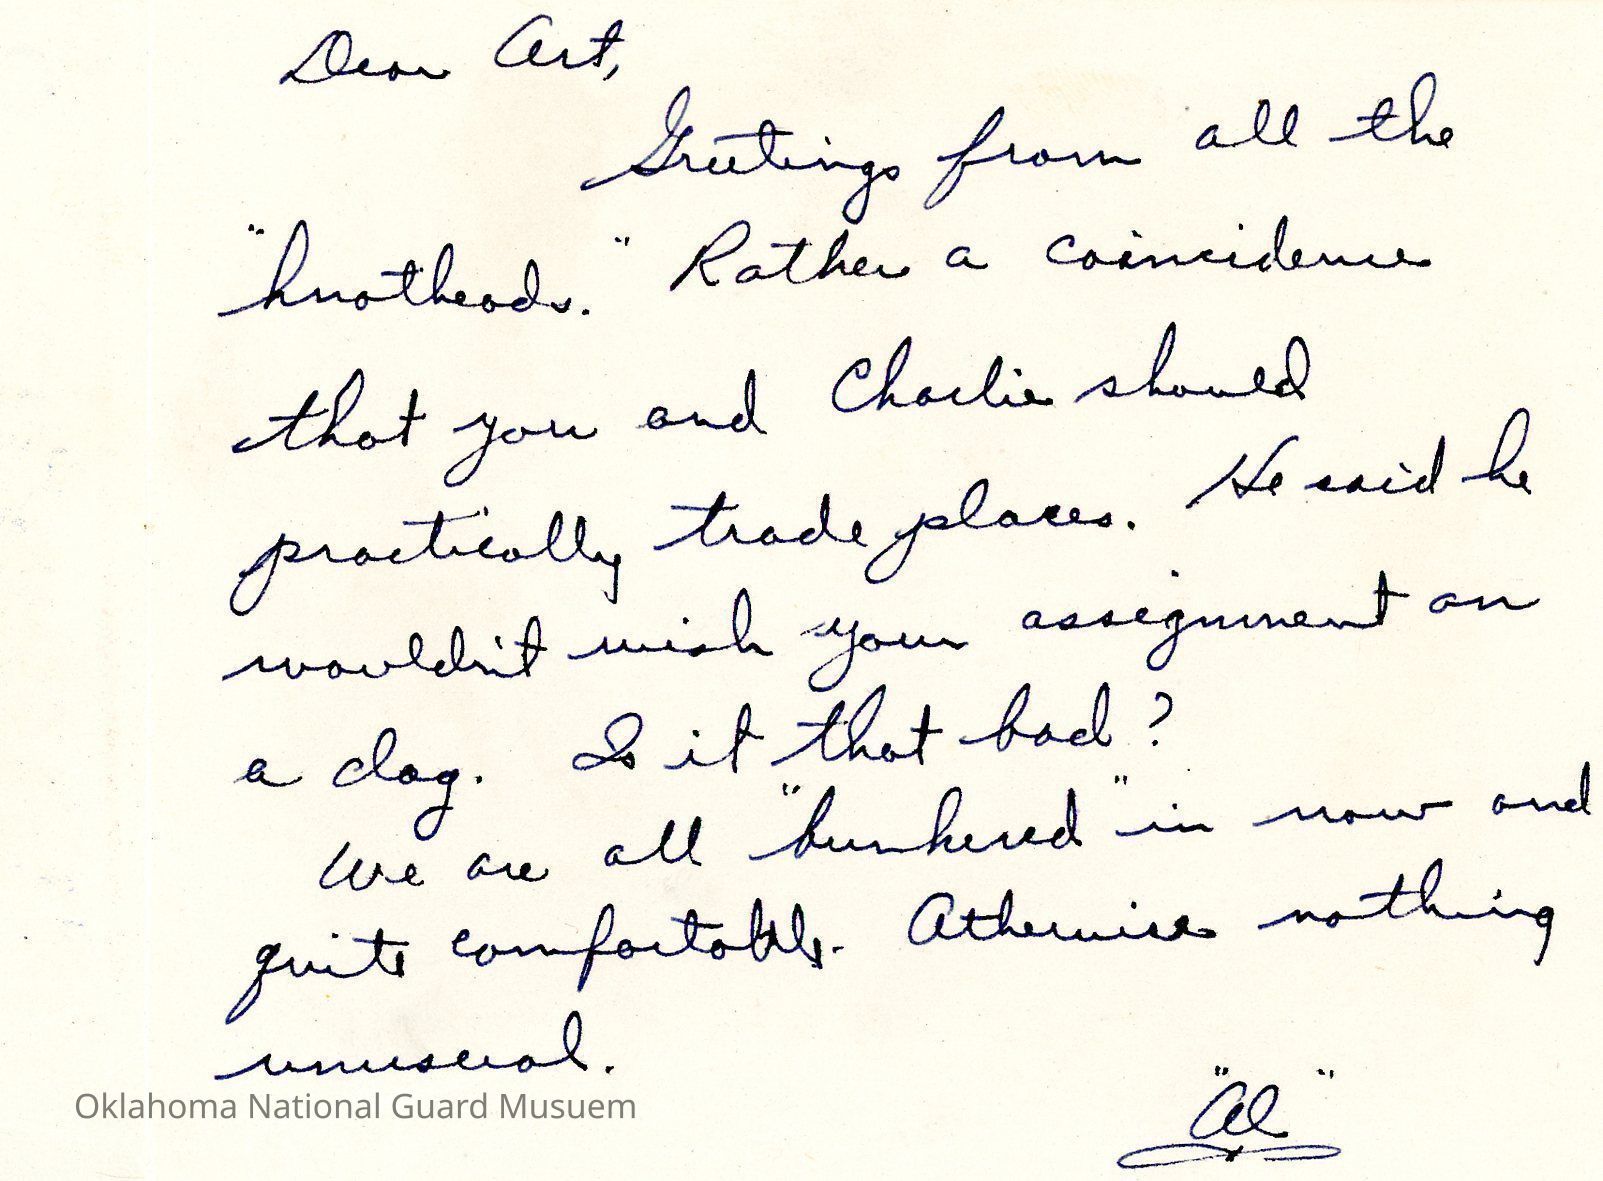 Dear Art,
Greetings from all the
"knotheads." Rather a coincidence
that you and Charlie should
practically trade places. He said he
wouldn't wish your assignment on
a dog. Is it that bad?
We are all "bunkered" in now and
quite comfortable. Otherwise nothing
unusual.
Oklahoma National Guard Musuem
"Al"